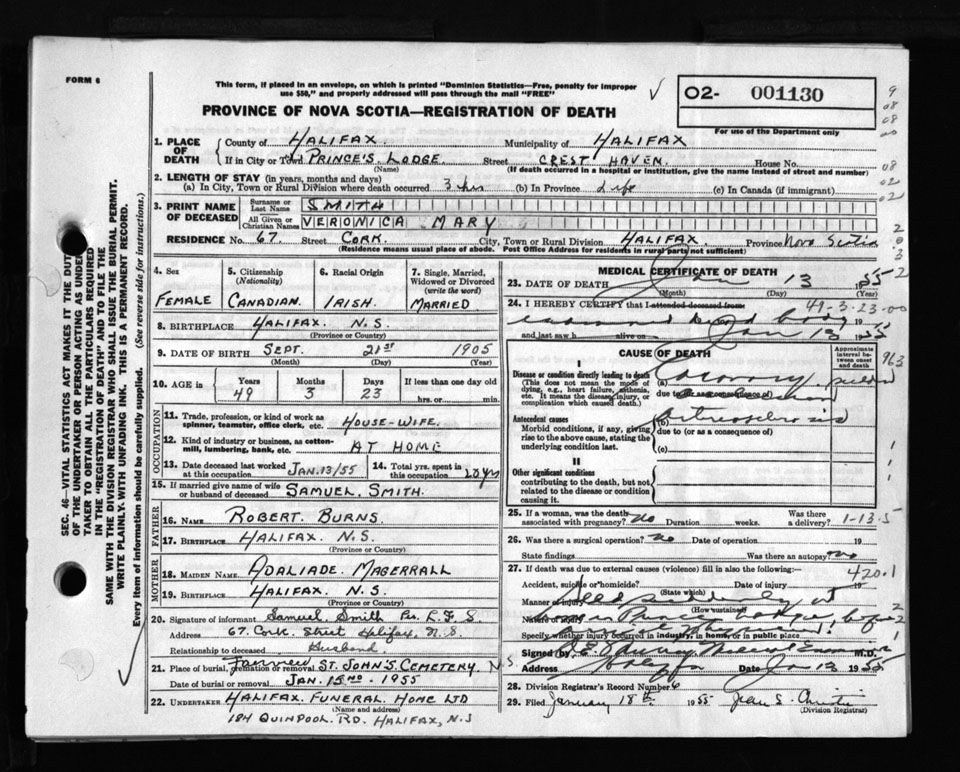 FORM 6
This form, if placed in an envelope, on which is printed "Dominion Statistics—Free, penalty for improper
use $50," and properly addressed will pass through the mail "FREE"
PROVINCE OF NOVA SCOTIA—REGISTRATION OF DEATH
02- 001130
For use of the Department only
1. PLACE OF DEATH
County of HALIFAX Municipality of HALIFAX
If in City or Town PRINCE'S LODGE Street CREST HAVEN House No.
(Name) (If death occurred in a hospital or institution, give the name instead of street and number)
2. LENGTH OF STAY (in years, months and days)
(a) In City, Town or Rural Division where death occurred 3 hrs (b) In Province Life (c) In Canada (if immigrant)
3. PRINT NAME OF DECEASED
Surname or Last Name SMITH
All Given or Christian Names VERONICA MARY
RESIDENCE No. 67 Street CORK City, Town or Rural Division HALIFAX Province Nova Scotia
(Residence means usual place of abode. Post Office Address for residents in rural parts not sufficient)
4. Sex FEMALE
5. Citizenship (Nationality) CANADIAN
6. Racial Origin IRISH.
7. Single, Married, Widowed or Divorced (write the word) MARRIED
8. BIRTHPLACE HALIFAX N.S.
(Province or Country)
9. DATE OF BIRTH SEPT. 21ST 1905
(Month) (Day) (Year)
10. AGE in Years 49 Months 3 Days 23 If less than one day hrs. or min.
OCCUPATION
11. Trade, profession, or kind of work as spinner, teamster, office clerk, etc. HOUSE-WIFE.
12. Kind of industry or business, as cotton-mill, lumbering, bank, etc. AT HOME
13. Date deceased last worked at this occupation JAN.13/55 14. Total yrs. spent in this occupation 20 yrs
15. If married give name of wife or husband of deceased SAMUEL. SMITH.
FATHER
16. NAME ROBERT. BURNS.
17. BIRTHPLACE HALIFAX. N.S.
(Province or Country)
MOTHER
18. MAIDEN NAME ADALIADE. MAGERRALL
19. BIRTHPLACE HALIFAX N.S
(Province or Country)
20. Signature of informant Samuel. Smith Per. L.F.S.
Address 67. Cork. Street Halifax. N.S.
Relationship to deceased Husband.
21. Place of burial, cremation or removal Fairview ST. JOHN'S. CEMETERY. N.S.
Date of burial or removal JAN. 15 - 1955
22. UNDERTAKER HALIFAX. FUNERAL. HOME LTD
(Name and address)
184 QUINPOOL. RD. HALIFAX, N.S
MEDICAL CERTIFICATE OF DEATH
23. DATE OF DEATH Jan 13 1955
(Month) (Day) (Year)
24. I HEREBY CERTIFY that I attended deceased from 49-3-23-00
dead body 19
and last saw h alive on Jan 13 1955
CAUSE OF DEATH
Approximate interval between onset and death
Disease or condition directly leading to death
(This does not mean the mode of dying, e.g., heart failure, asthenia, etc. It means the disease, injury, or complication which caused death.)
(a) Coronary sudden
due to occlusion
Antecedent causes
Morbid conditions, if any, giving rise to the above cause, stating the underlying condition last.
(b) Arteriosclerosis
due to (or as a consequence of)
(c)
II
Other significant conditions
contributing to the death, but not related to the disease or condition causing it.
25. If a woman, was the death associated with pregnancy? no Duration weeks. Was there a delivery? 1-13-5
26. Was there a surgical operation? no Date of operation 19
State findings Was there an autopsy? no
27. If death was due to external causes (violence) fill in also the following:— 420.1
Accident, suicide or homicide? Date of injury 19
(State which)
Manner of injury Died suddenly at
(How sustained)
Nature of injury
Specify whether injury occurred in industry, in home, or in public place
Signed by Medical Examiner M.D.
Address Halifax Jan 13 1955
28. Division Registrar's Record Number 6
29. Filed January 18th 1955 Jean S. Christie
(Division Registrar)
SEC. 46—VITAL STATISTICS ACT MAKES IT THE DUTY
OF THE UNDERTAKER OR PERSON ACTING AS UNDERTAKER TO OBTAIN ALL THE PARTICULARS REQUIRED
IN THE "REGISTRATION OF DEATH" AND TO FILE THE
SAME WITH THE DIVISION REGISTRAR WHO SHALL ISSUE THE BURIAL PERMIT.
WRITE PLAINLY. WITH UNFADING INK. THIS IS A PERMANENT RECORD.
Every item of information should be carefully supplied. (See reverse side for instructions.)
963